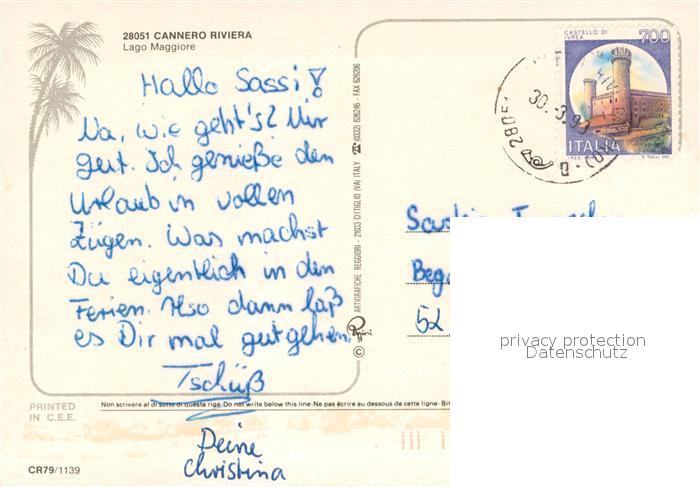 28051 CANNERO RIVIERA
Lago Maggiore
Hallo Sassi!
Na, wie geht's? Mir
gut. Ich genieße den
Urlaub in vollen
Zügen. Was machst
Du eigentlich in den
Ferien. Also dann laß
es Dir mal gutgehen.
Tschüß
Deine
Christina
PRINTED
IN C.E.E.
CR79/1139
Non scrivere al di sotto di questa riga. Do not write below this line - Ne pas écrire au dessous de cette ligne - Bit
© ARTIGRAFICHE REGGIORI - 21033 CITTIGLIO (VA) ITALY ☎ (0332) 626246 - FAX 626206
CASTELLO DI
IVREA
700
ITALIA
30.3.
28051
52
privacy protection
Datenschutz